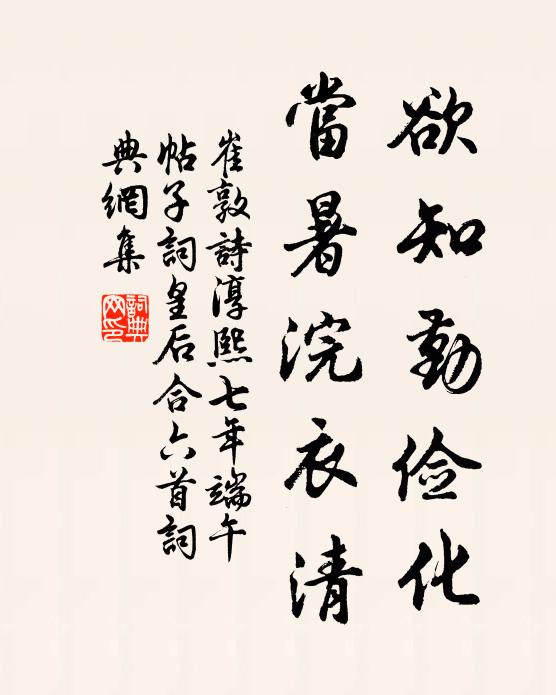 欲知勤俭化
當暑浣衣清
崔敦詩淳熙七年端午
帖子詞皇后合六首詞
典網集
詞典网印